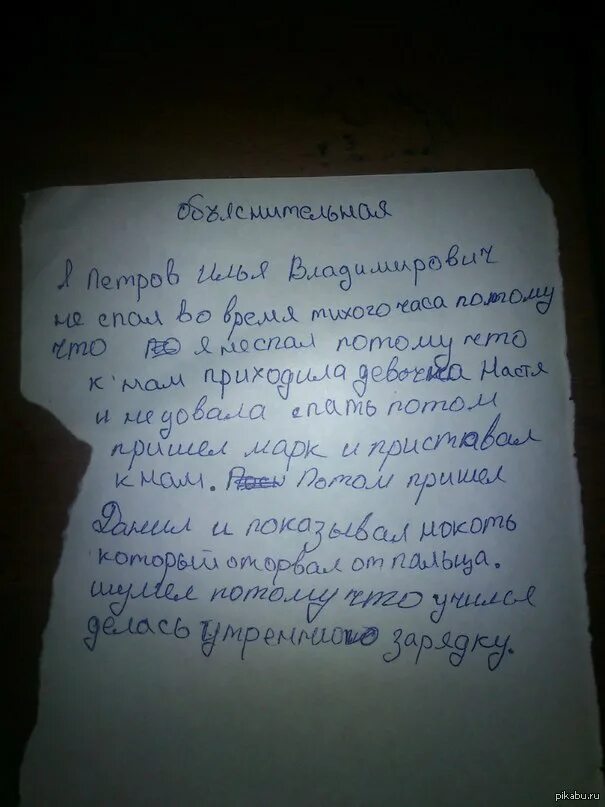 объяснительная
Я Петров Илья Владимирович
не спал во время тихого часа потому
что я неспал потому что
к нам приходила девочка Настя
и не довала спать потом
пришел марк и приставал
к нам. Потом пришел
Данил и показывал нокоть
который оторвал от пальца.
шумел потому что учился
делась утреннию зарядку.
pikabu.ru